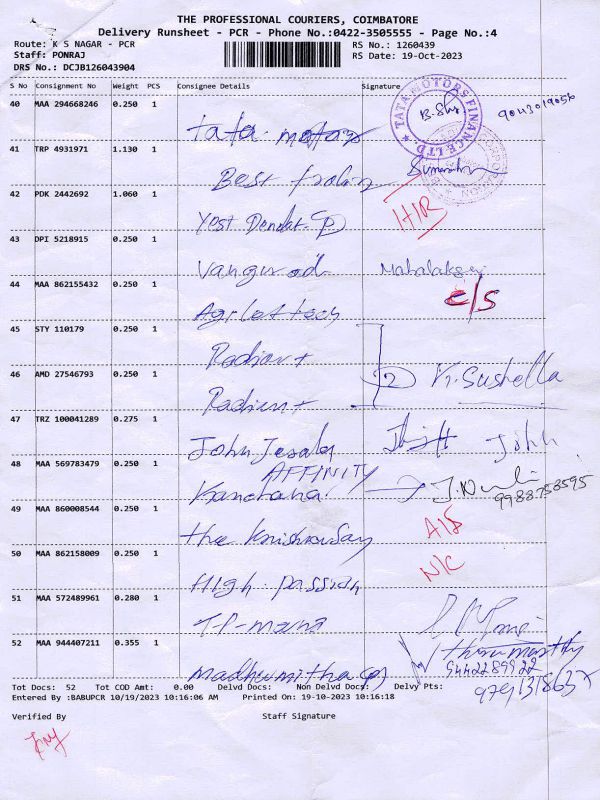 THE PROFESSIONAL COURIERS, COIMBATORE
Delivery Runsheet - PCR - Phone No.:0422-3505555 - Page No.:4
Route: K S NAGAR - PCR
RS No.: 1260439
Staff: PONRAJ
RS Date: 19-Oct-2023
DRS No.: DCJB126043904
S No Consignment No Weight PCS Consignee Details Signature
40 MAA 294668246 0.250 1
TATA MOTORS FINANCE LTD.
9043019056
Tata motors
41 TRP 4931971 1.130 1
Best
42 PDK 2442692 1.060 1
H/R
Yest Dendat (P)
43 DPI 5218915 0.250 1
Vangurad Mahalakshmi
44 MAA 862155432 0.250 1
C/S
Agrlottech
45 STY 110179 0.250 1
Radiant
46 AMD 27546793 0.250 1
2 K. Susheella
Radiant
47 TRZ 100041289 0.275 1
John John
AFFINITY
48 MAA 569783479 0.250 1
Kanchana J.
9988758595
49 MAA 860008544 0.250 1
A/S
the
50 MAA 862158009 0.250 1
N/C
High passion
51 MAA 572489961 0.280 1
52 MAA 944407211 0.355 1
Thirumurthy
9442289922
Madhumitha (P) 9791318637
Tot Docs: 52 Tot COD Amt: 0.00 Delvd Docs: Non Delvd Docs: Delvy Pts:
Entered By :BABUPCR 10/19/2023 10:16:06 AM Printed On: 19-10-2023 10:16:18
Verified By Staff Signature